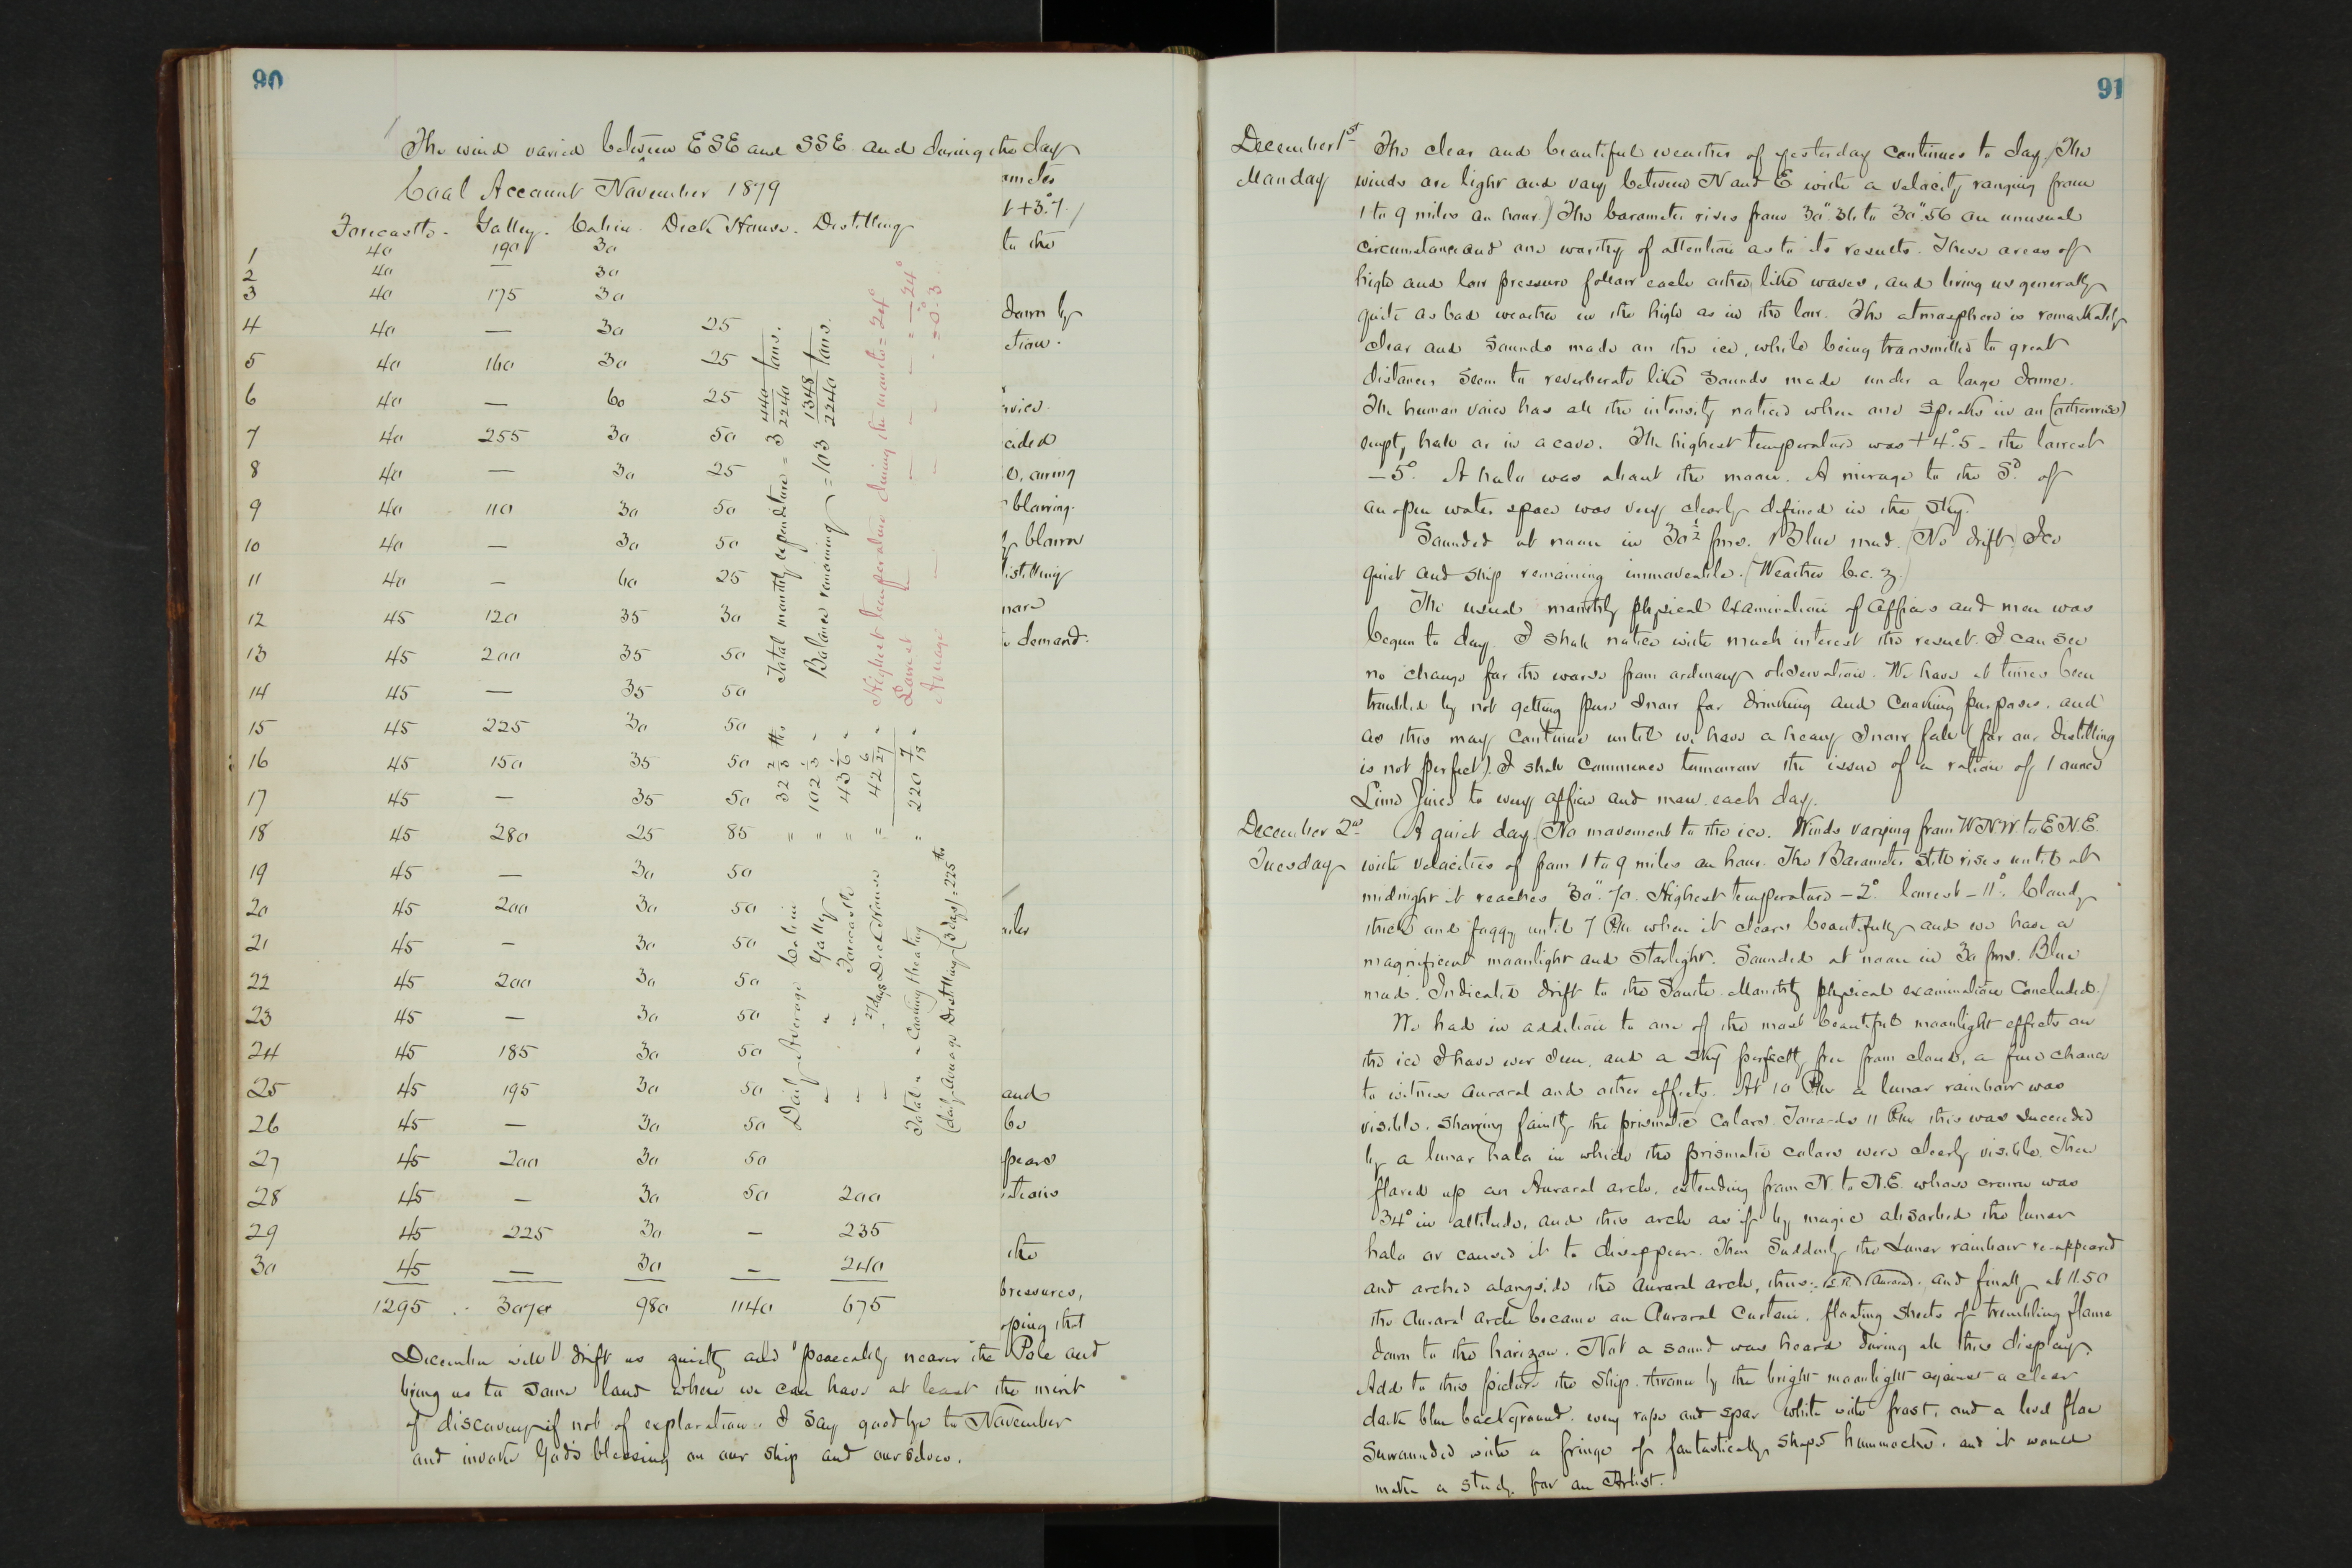 90
The wind varied between ESE and SSE and during the day
Coal Account November 1879
Forecastle. Galley. Cabin. Deck House. Distilling
1 40 190 30
2 40 — 30
3 40 175 30
4 40 — 30 25
5 40 160 30 25
6 40 — 60 25
7 40 255 30 50
8 40 — 30 25
9 40 110 30 50
10 40 — 30 50
11 40 — 60 25
12 45 120 35 30
13 45 200 35 50
14 45 — 35 50
15 45 225 30 50
16 45 150 35 50
17 45 — 35 50
18 45 280 25 85
19 45 — 30 50
20 45 200 30 50
21 45 — 30 50
22 45 200 30 50
23 45 — 30 50
24 45 185 30 50
25 45 195 30 50
26 45 — 30 50
27 45 200 30 50
28 45 — 30 50 200
29 45 225 30 — 235
30 45 — 30 — 240
1295 3070 980 1140 675
Total monthly expenditure = 3 440/2240 tons.
Balance remaining = 103 1348/2240 tons.
Highest temperature during the month = 24°
Lowest — — — = — 24°
Average — — — = 0°.3
Daily Average Cabin = 32 2/3 lbs
" " Galley = 102 1/3 "
" " Forecastle = 43 1/6 "
" " 27 days Deck House = 42 6/27 "
Total " Cooking & heating = 220 7/18 "
(daily average Distilling (3 days) = 225 lbs
to the
down by
ction.
blowing.
blown
istilling
demand.
and
be
pears
the
pressures,
oping that
December will drift us quietly and peaceably nearer the Pole and
bring us to some land where we can have at least the merit
of discovery if not of exploration. I say goodbye to November
and invoke God's blessing on our ship and ourselves.
91
December 1st The clear and beautiful weather of yesterday continues to day. The
Monday winds are light and vary between N and E with a velocity ranging from
1 to 9 miles an hour.) The barometer rises from 30".36 to 30".56 an unusual
circumstance and one worthy of attention as to its results. These areas of
high and low pressure follow each other like waves, and bring us generally
quite as bad weather in the high as in the low. The atmosphere is remarkably
clear and sounds made on the ice, while being transmitted to great
distances seem to reverberate like sounds made under a large dome.
The human voice has all the intensity noticed when one speaks in an (otherwise)
empty hall or in a cave. The highest temperature was +4°.5 – the lowest
– 5°. A halo was about the moon. A mirage to the Sd of
an open water space was very clearly defined in the sky.
Sounded at noon in 30 1/2 fms. Blue mud. (No drift) Ice
quiet and ship remaining immovable. (Weather b.c. z.)
The usual monthly physical examination of officers and men was
begun to day. I shall notice with much interest the result. I can see
no change for the worse from ordinary observation. We have at times been
troubled by not getting pure snow for drinking and cooking purposes, and
as this may continue until we have a heavy snow fall (for our distilling
is not perfect). I shall commence tomorrow the issue of a ration of 1 ounce
Lime Juice to every officer and man each day.
December 2nd A quiet day. (No movement to the ice. Winds varying from W.N.W. to E.N.E.
Tuesday with velocities of from 1 to 9 miles an hour. The Barometer still rises until at
midnight it reaches 30".70. Highest temperature – 2° lowest – 11°. Cloudy
thick and foggy until 7 P.M. when it clears beautifully and we have a
magnificent moonlight and starlight. Sounded at noon in 30 fms. Blue
mud. Indicated drift to the South. Monthly physical examination concluded.)
We had in addition to one of the most beautiful moonlight effects on
the ice I have ever seen, and a sky perfectly free from cloud, a fine chance
to witness auroral and other effects. At 10 P.M. a lunar rainbow was
visible, showing faintly the prismatic colors. Towards 11 P.M. this was succeeded
by a lunar halo in which the prismatic colors were clearly visible. Then
flared up an Auroral arch, extending from N. to N.E. whose crown was
34° in altitude, and this arch as if by magic absorbed the lunar
halo or caused it to disappear. Then suddenly the Lunar rainbow re-appeared
and arched alongside the auroral arch, thus: (L.R.) (Aurora). and finally at 11.50
the Auroral arch became an Auroral Curtain, floating sheets of trembling flame
down to the horizon. Not a sound was heard during all this display.
Add to this picture the ship thrown by the bright moonlight against a clear
dark blue background, every rope and spar white with frost, and a level floe
surrounded with a fringe of fantastically shaped hummocks, and it would
make a study for an Artist.